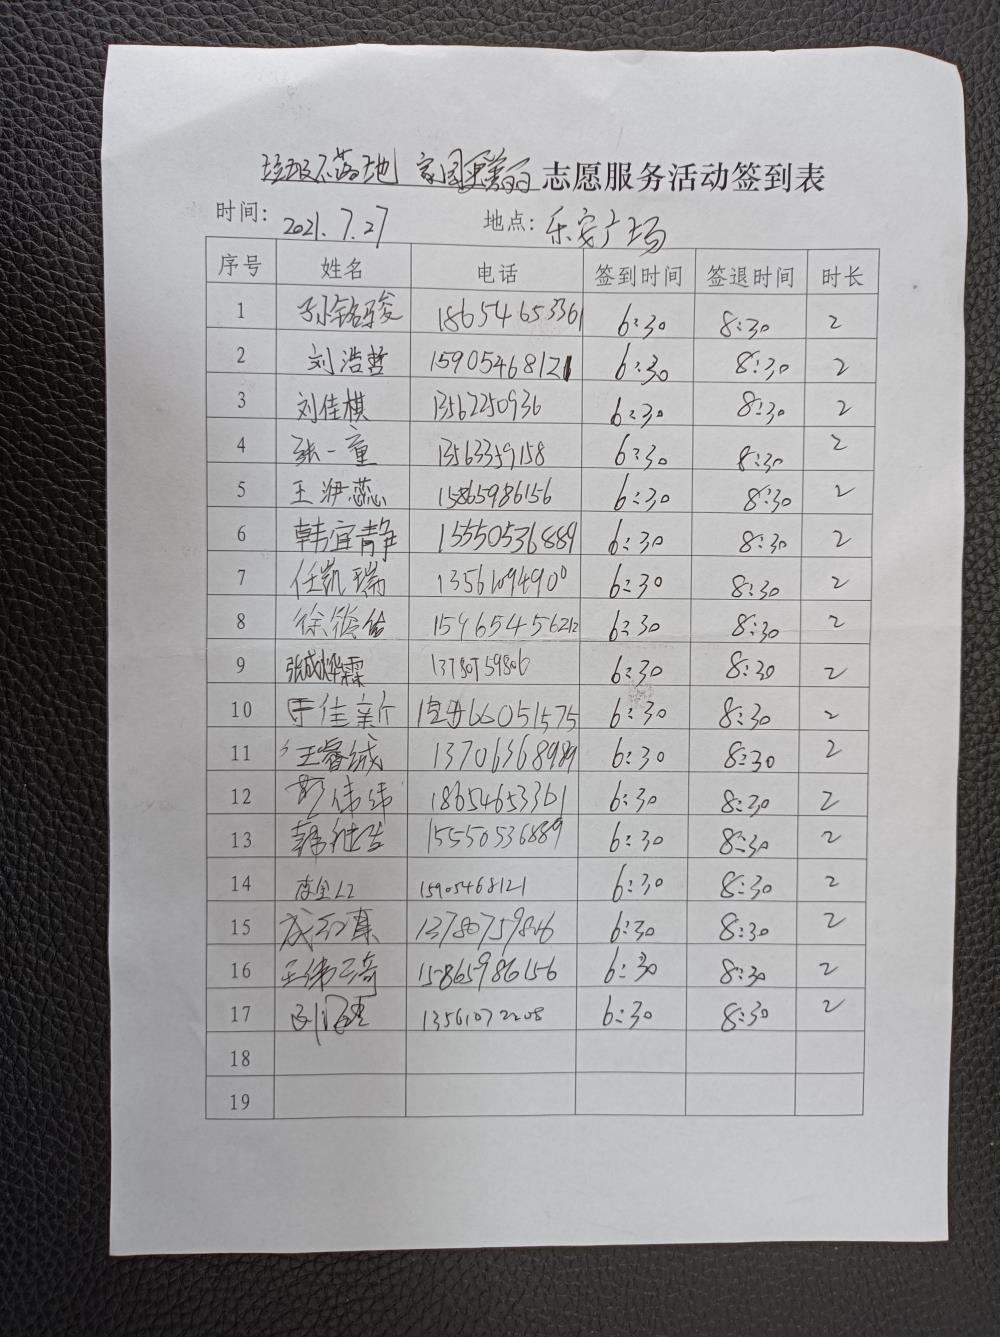 垃圾不落地 家园更美丽 志愿服务活动签到表
时间: 2021.7.27 地点: 乐安广场
序号 姓名 电话 签到时间 签退时间 时长
1 孙铭骏 18654653361 6:30 8:30 2
2 刘浩哲 15905468121 6:30 8:30 2
3 刘佳棋 13562250936 6:30 8:30 2
4 张一童 13563359158 6:30 8:30 2
5 王洢蕊 15865986156 6:30 8:30 2
6 韩宜静 15550536889 6:30 8:30 2
7 任凯瑞 13561094900 6:30 8:30 2
8 徐 15965456212 6:30 8:30 2
9 张成烨霖 13780759806 6:30 8:30 2
10 于佳新 66051575 6:30 8:30 2
11 王睿绒 13706368989 6:30 8:30 2
12 彭伟伟 18654653361 6:30 8:30 2
13 韩 15550536889 6:30 8:30 2
14 15905468121 6:30 8:30 2
15 成红真 13780759806 6:30 8:30 2
16 王 15865986156 6:30 8:30 2
17 刘 13561072208 6:30 8:30 2
18
19